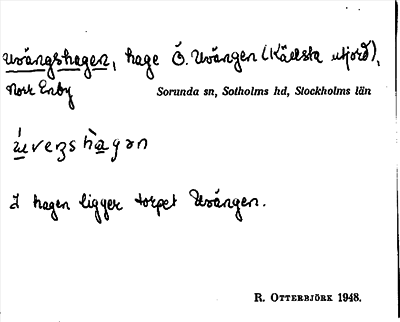 Uvängshagen, hage Ö. Uvängen (Källsta utjord),
Norr Enby Sorunda sn, Sotholms hd, Stockholms län
I hagen ligger torpet Uvängen.
R. Otterbjörk 1948.